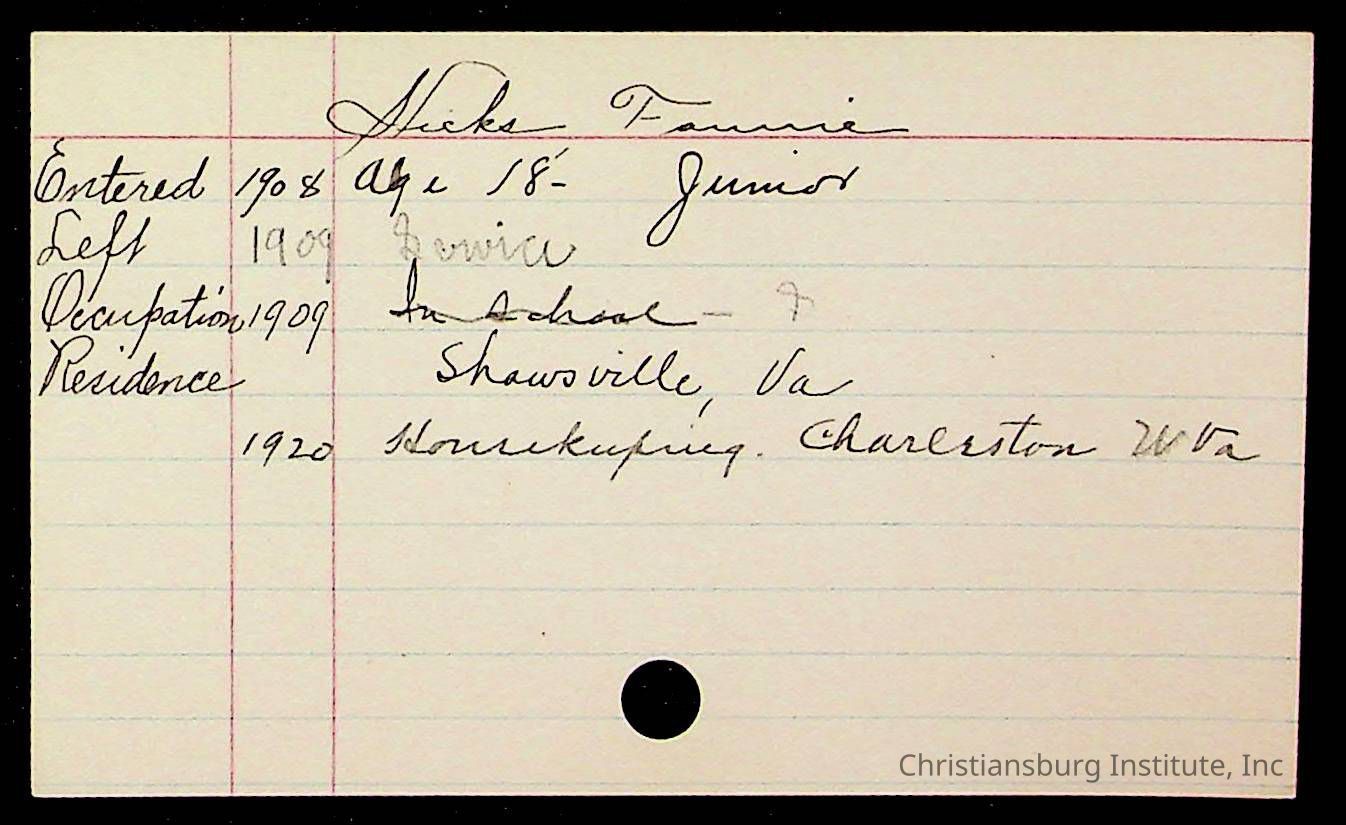 Hicks Fannie
Entered 1908 Age 18- Junior
Left 1909
Occupation 1909 In school -
Residence Shawsville, Va
1920 Housekeeping. Charleston W Va
Christiansburg Institute, Inc